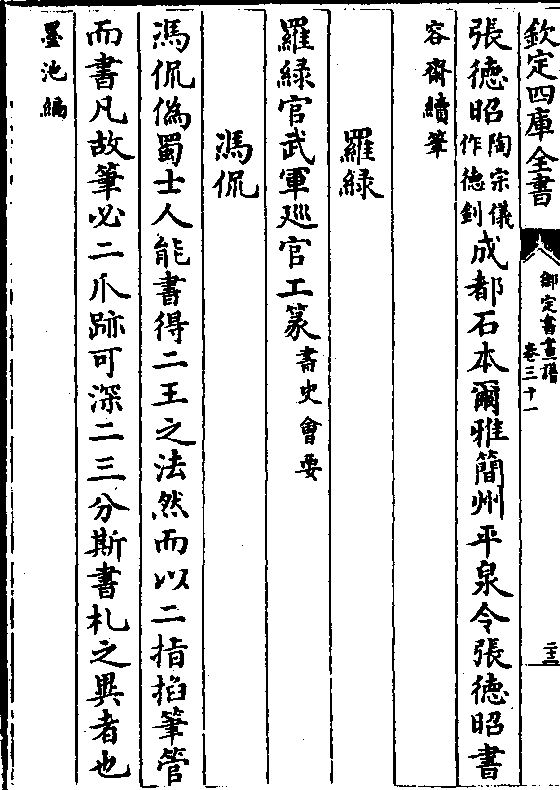 欽定四庫全書
御定書畫譜
卷三十一
二十三
張德昭陶宗儀作德釗成都石本爾雅簡州平泉令張德昭書
容齋續筆
羅綠
羅綠官武軍巡官工篆書史會要
馮侃
馮侃偽蜀士人能書得二王之法然而以二指掐筆管
而書凡故筆必二爪跡可深二三分斯書札之異者也
墨池編